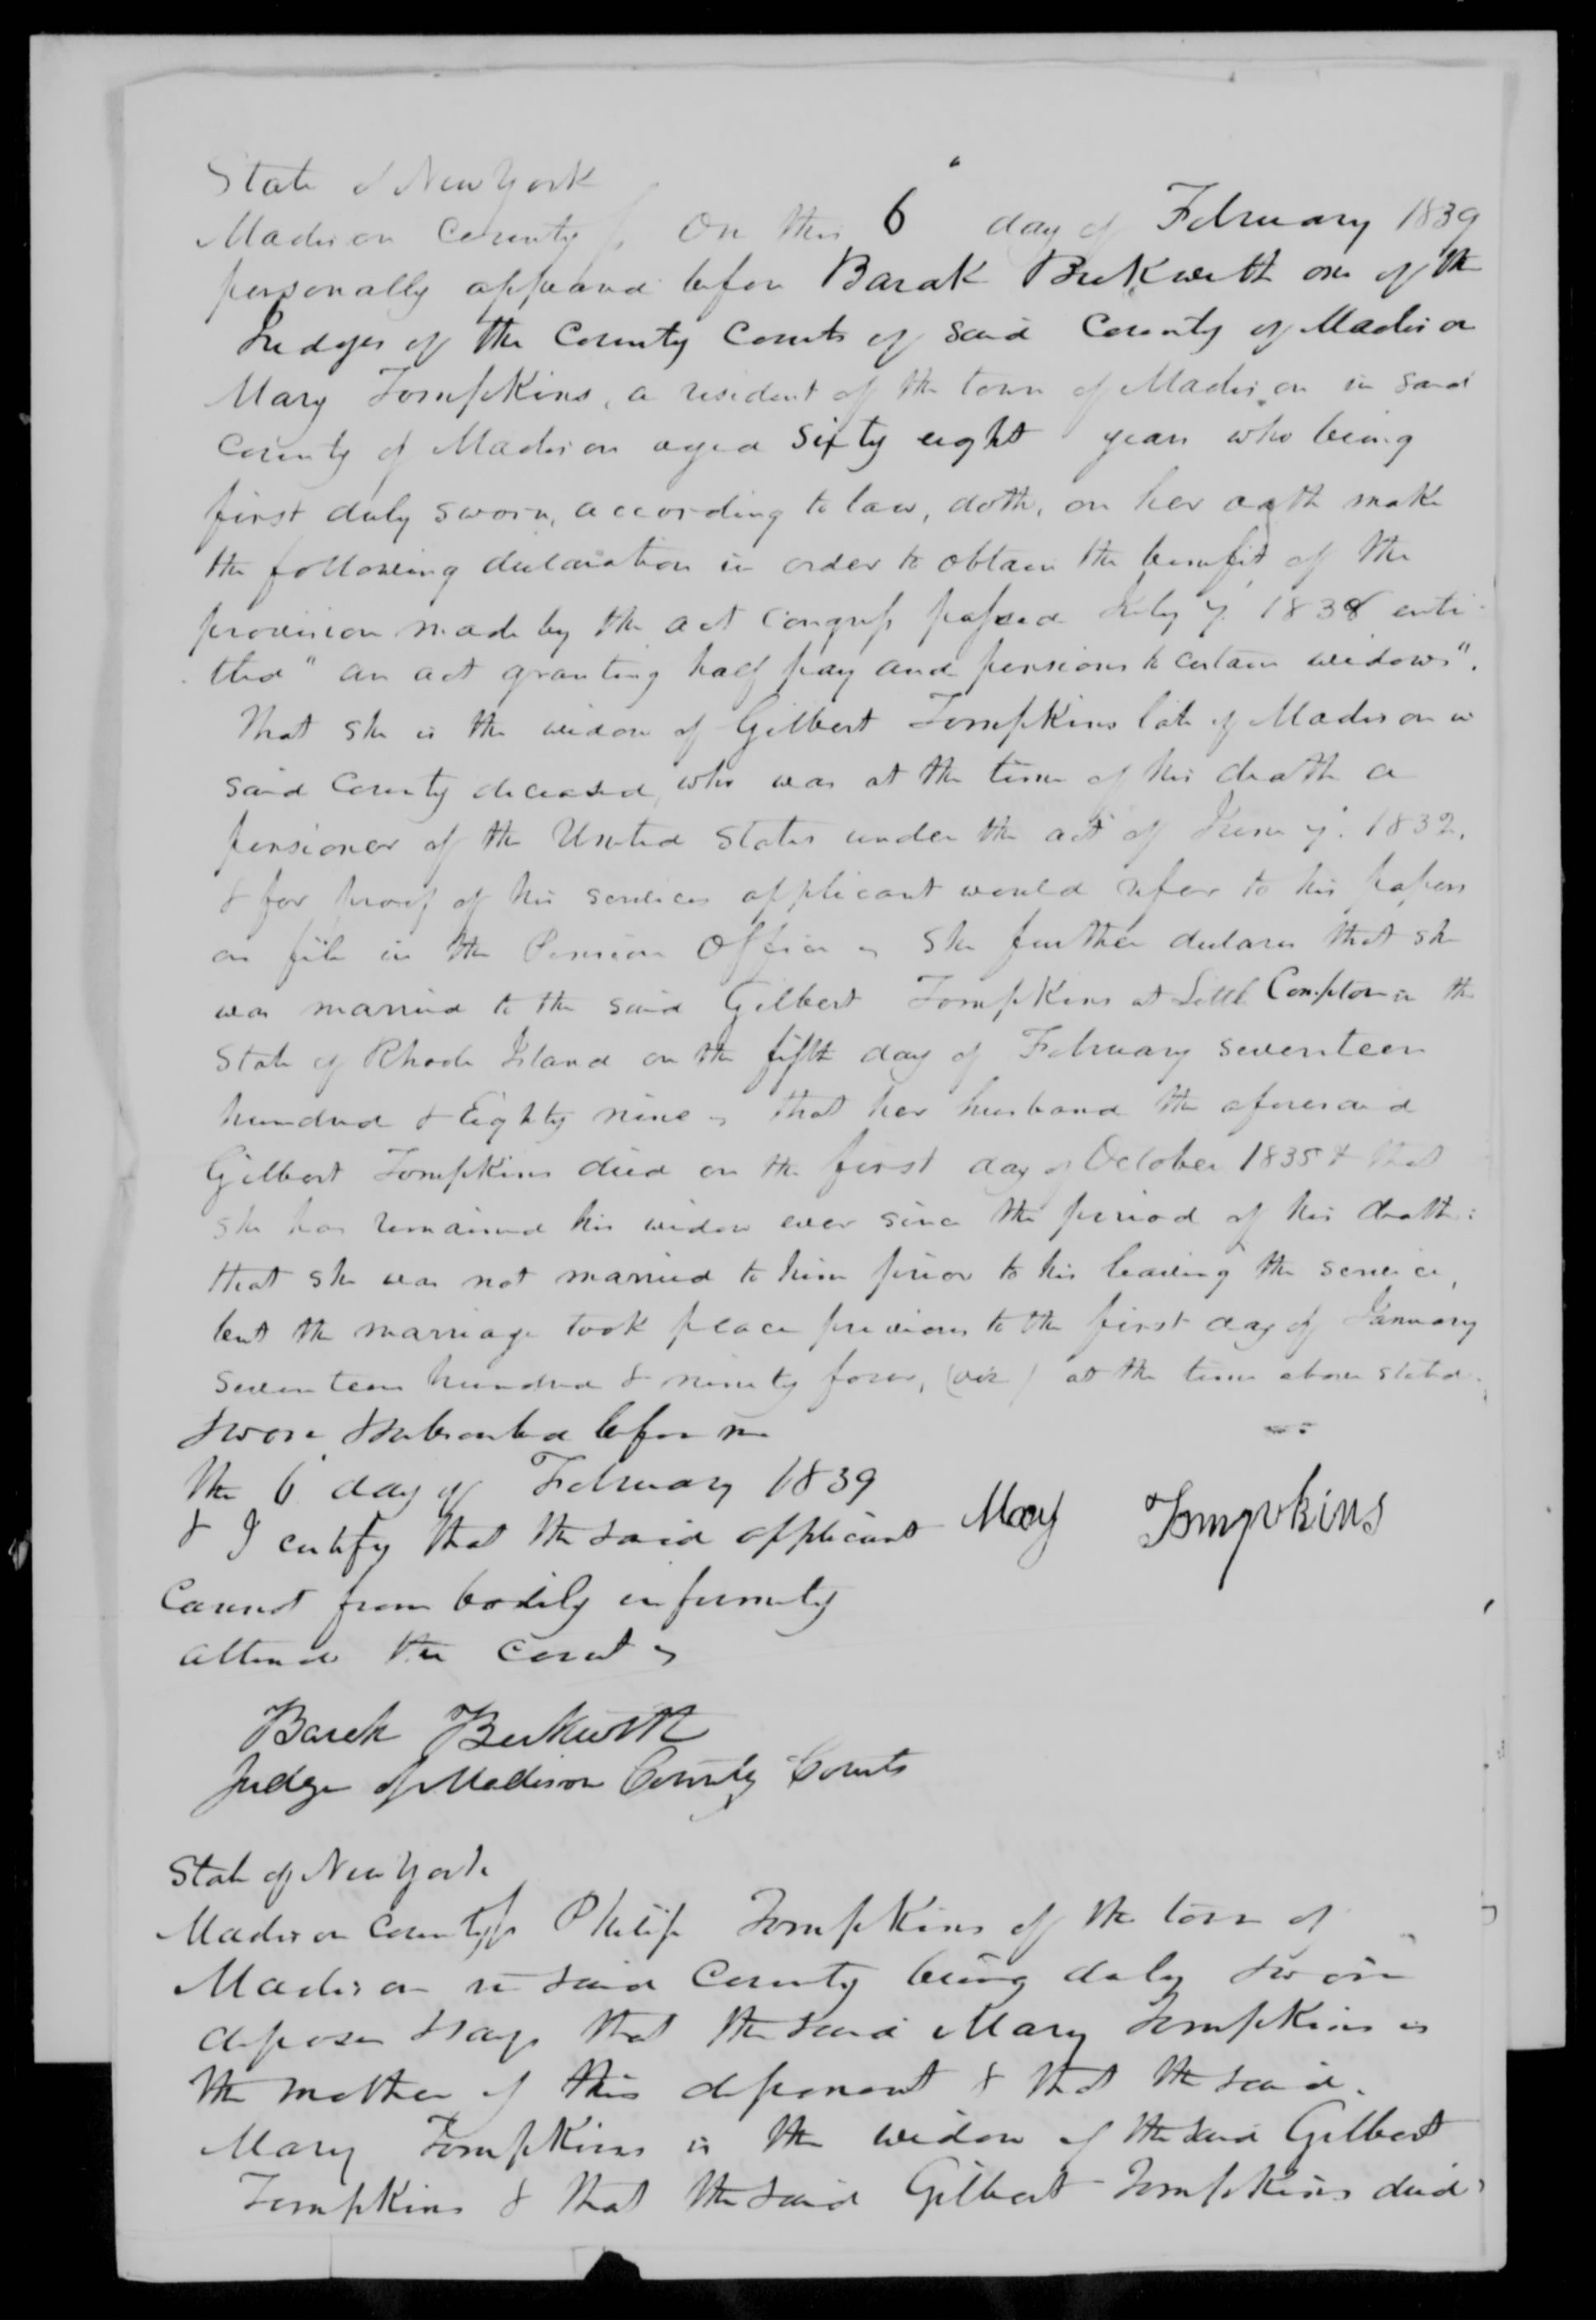 State of New York
Madison County ss On this 6 day of February 1839
personally appeared before Barak Beckwith one of the
Judges of the County Courts of said County of Madison
Mary Tompkins, a resident of the town of Madison in said
County of Madison aged Sixty eight years who being
first duly sworn, according to law, doth, on her oath make
the following declaration in order to obtain the benefit of the
provision made by the act Congress passed July 7. 1838 enti-
tled "an act granting half pay and pensions to certain widows".
That she is the widow of Gilbert Tompkins late of Madison in
said County deceased, who was at the time of his death a
pensioner of the United States under the act of June 7. 1832.
& for proof of his services applicant would refer to his papers
on file in the Pension Office - She further declares that she
was married to the said Gilbert Tompkins at Little Compton in the
State of Rhode Island on the fifth day of February seventeen
hundred & Eighty nine - that her husband the aforesaid
Gilbert Tompkins died on the first day of October 1835 & that
she has remained his widow ever since the period of his death:
that she was not married to him prior to his leaving the service,
but the marriage took place previous to the first day of January
seventeen hundred & ninety four, (viz) at the time above stated.
Sworn & subscribed before me
the 6 day of February 1839
& I certify that the said applicant Mary Tompkins
cannot from bodily infirmity
attend the court -
Barak Beckwith
Judge of Madison County Courts
State of New York
Madison County ss Philip Tompkins of the town of
Madison in said County being duly sworn
deposes & says that the said Mary Tompkins is
the mother of this deponent & that the said
Mary Tompkins is the widow of the said Gilbert
Tompkins & that the said Gilbert Tompkins died